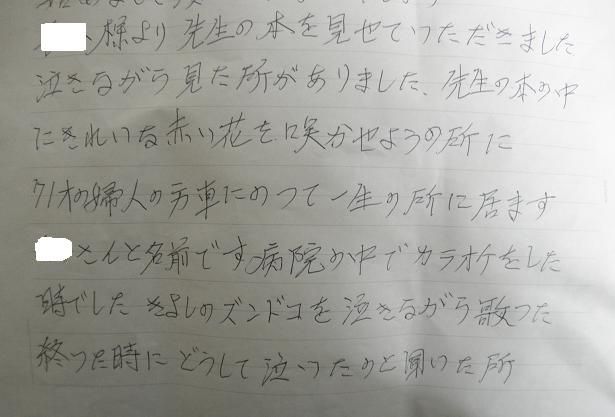 様より先生の本を見せていただきました
泣きながら見た所がありました、先生の本の中
にきれいな赤い花を咲かせようの所に
71才の婦人の方車にのつて一生の所に居ます
さんと名前です。病院の中でカラオケをした
時でした きよしのズンドコを泣きながら歌つた
終つた時にどうして泣いたのと聞いた所